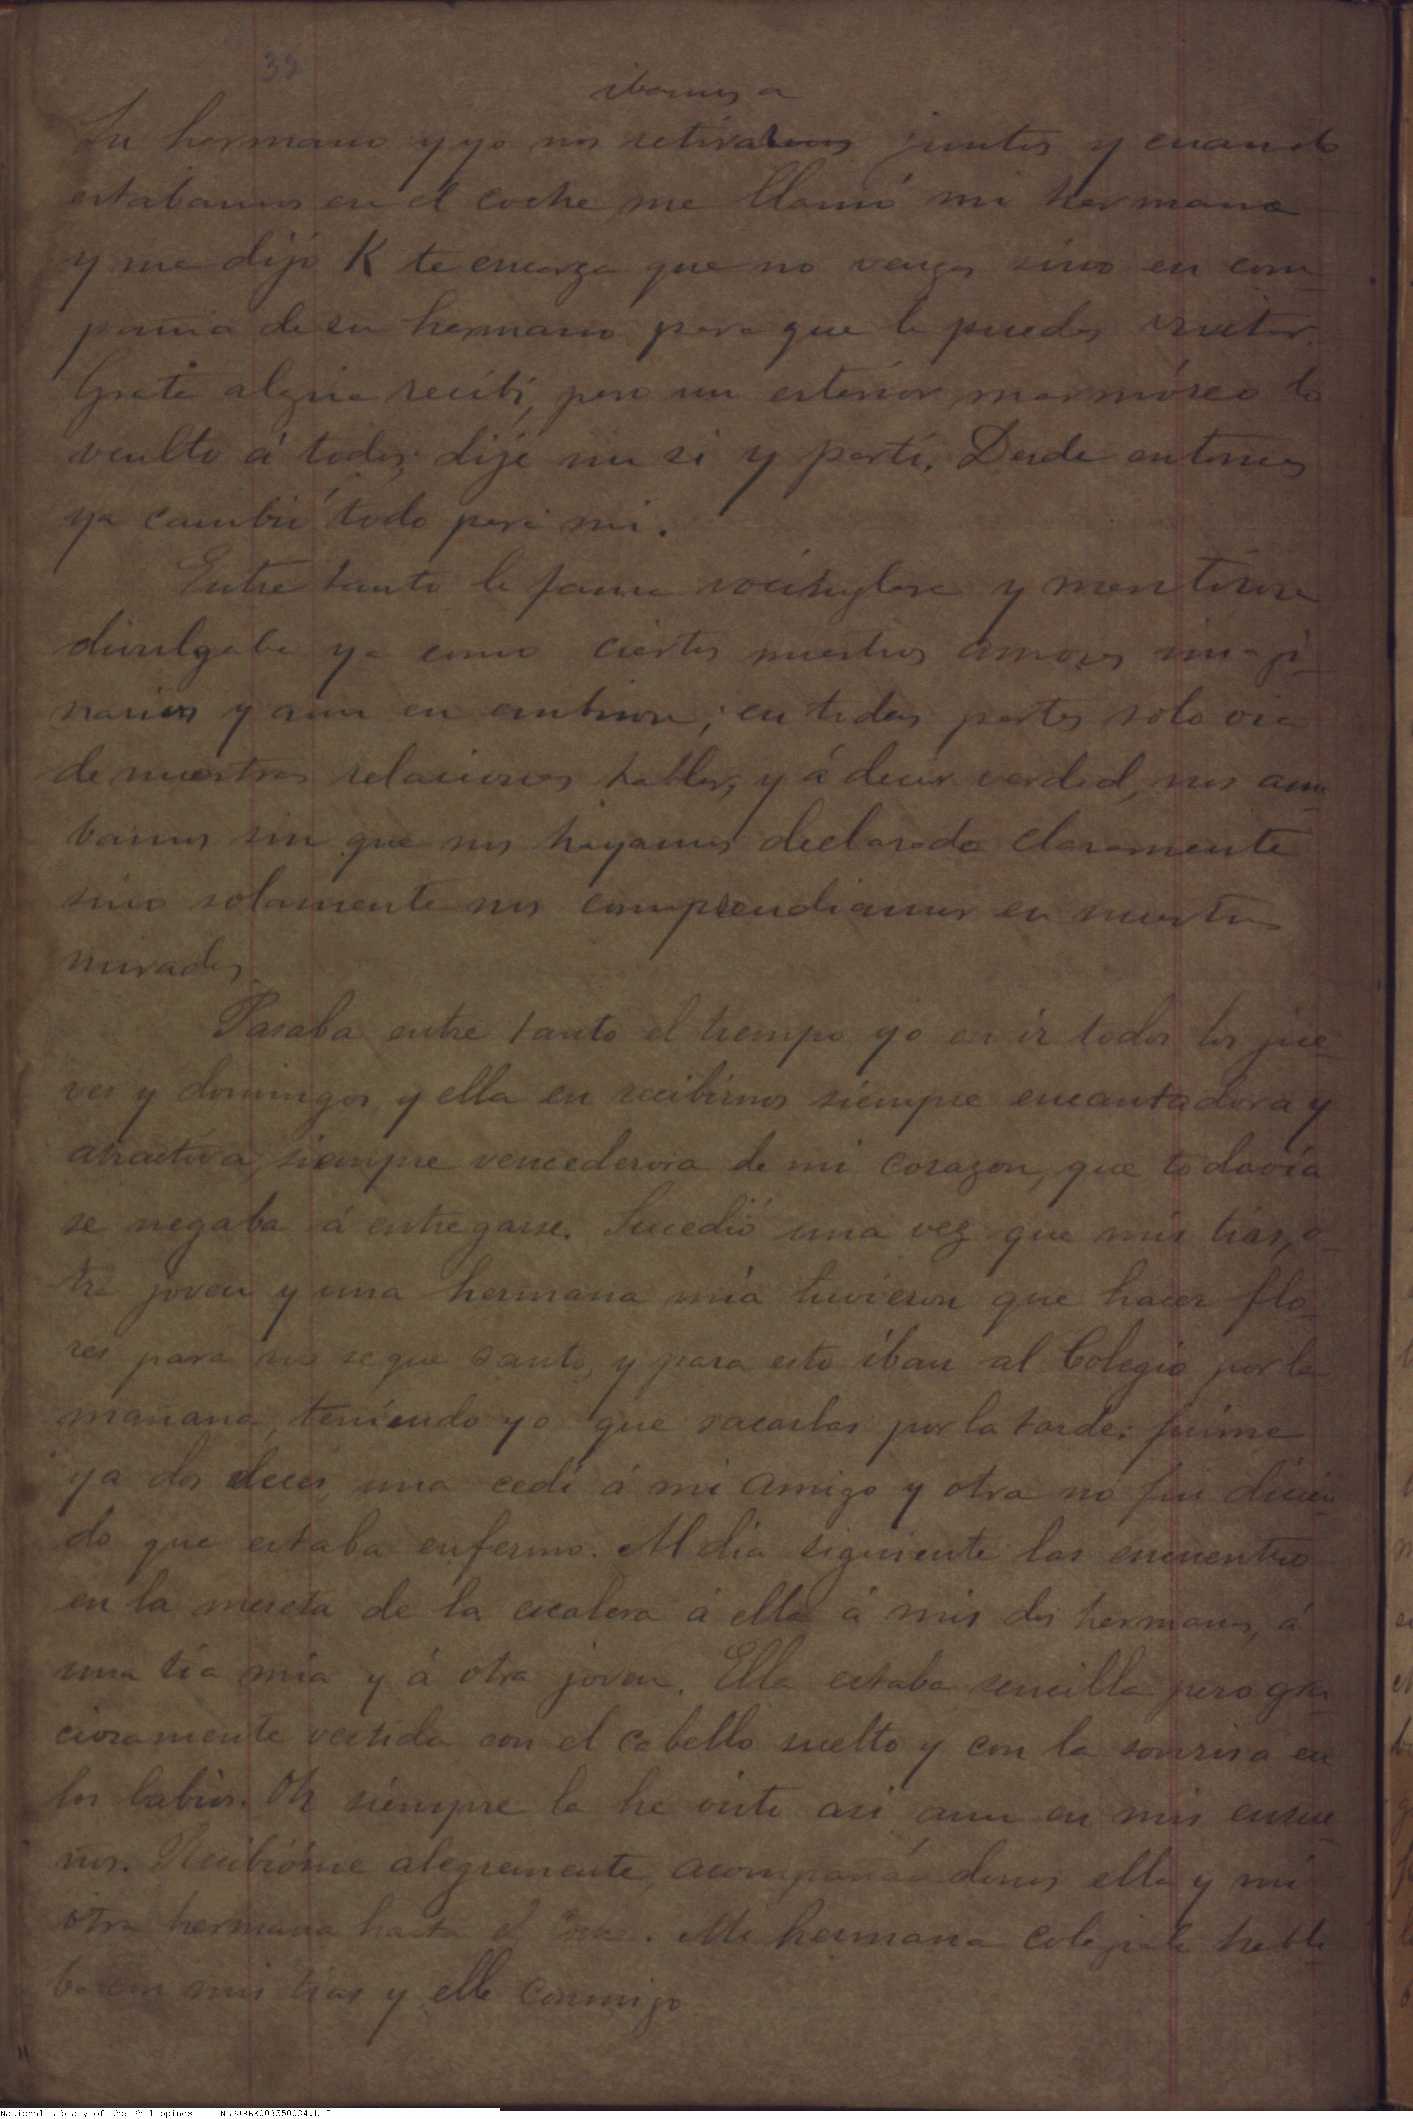 39
ibamos a
Su hermano y yo nos retirabamos juntos y cuando
estabamos en el coche me llamó mi hermana
y me dijo K te encarga que no vengas sino en com-
pañia de su hermano para que la puedas visitar.
Grata alegria recibi, pero un esterior marmóreo lo
oculto á todos; dije un si y parti. Desde entonces
ya cambió todo para mi.
Entre tanto la fama vocinglera y mentirosa
divulgaba ya como ciertos nuestros amores imaji-
narios y aun en embrion; en todas partes solo oia
de nuestras relaciones hablar; y á decir verdad, nos ama-
bamos sin que nos hayamos declarado claramente
sino solamente nos comprendiamos en nuestras
miradas.
Pasaba entre tanto el tiempo yo en ir todos los jue-
ves y domingos, y ella en recibirnos siempre encantadora y
atractiva, siempre vencedora de mi corazon, que todavía
se negaba á entregarse. Sucedió una vez que mis tias, o-
tra joven y una hermana mía tuvieron que hacer flo-
res para no se que santo, y para esto iban al Colegio por la
mañana, teniendo yo que sacarlas por la tarde: fuíme
ya dos veces, una cedí á mi amigo y otra no fui dicien-
do que estaba enfermo. Al dia siguiente las encuentro
en la meseta de la escalera á ella á mis dos hermanas, á
una tía mía y á otra joven. Ella estaba sencilla pero gra-
ciosamente vestida con el cabello suelto y con la sonrisa en
los labios. Oh siempre la he visto asi aun en mis ensue-
ños. Recibióme alegremente, acompañándonos ella y mi
otra hermana hasta el. Mi hermana colegiala habla-
ba con mis tias y ella conmigo
National Library of the Philippines